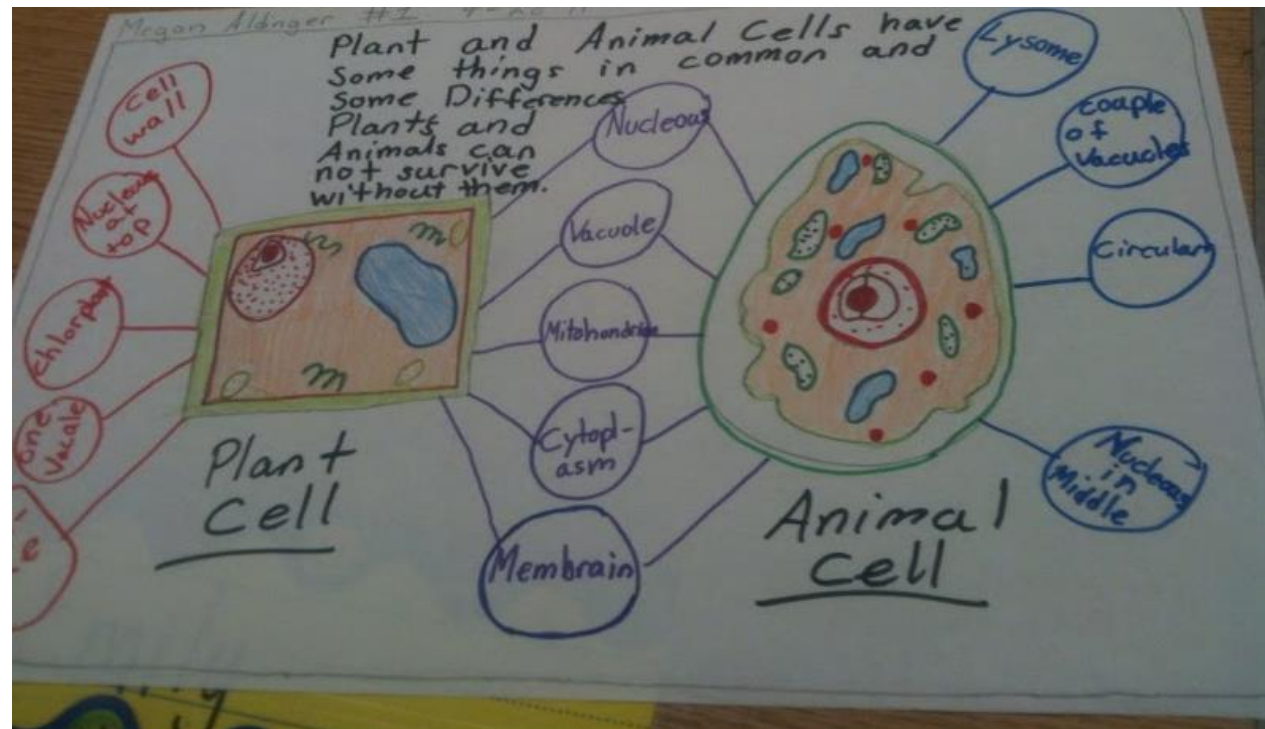 Megan Aldinger #1
Plant and Animal Cells have
some things in common and
some Differences
Plants and
Animals can
not survive
without them.
Cell
wall
Nucleous
at
top
Chlorplast
one
Vacale
Plant
Cell
Nucleous
Vacuole
Mitohondrion
Cytopl-
asm
Membrain
Lysome
couple
of
vacuoles
Circular
Nucleous
in
Middle
Animal
Cell